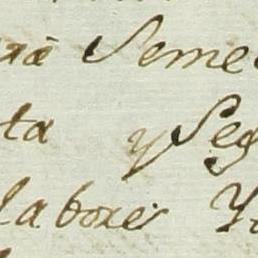 Seme
ta y Seg
labores Y